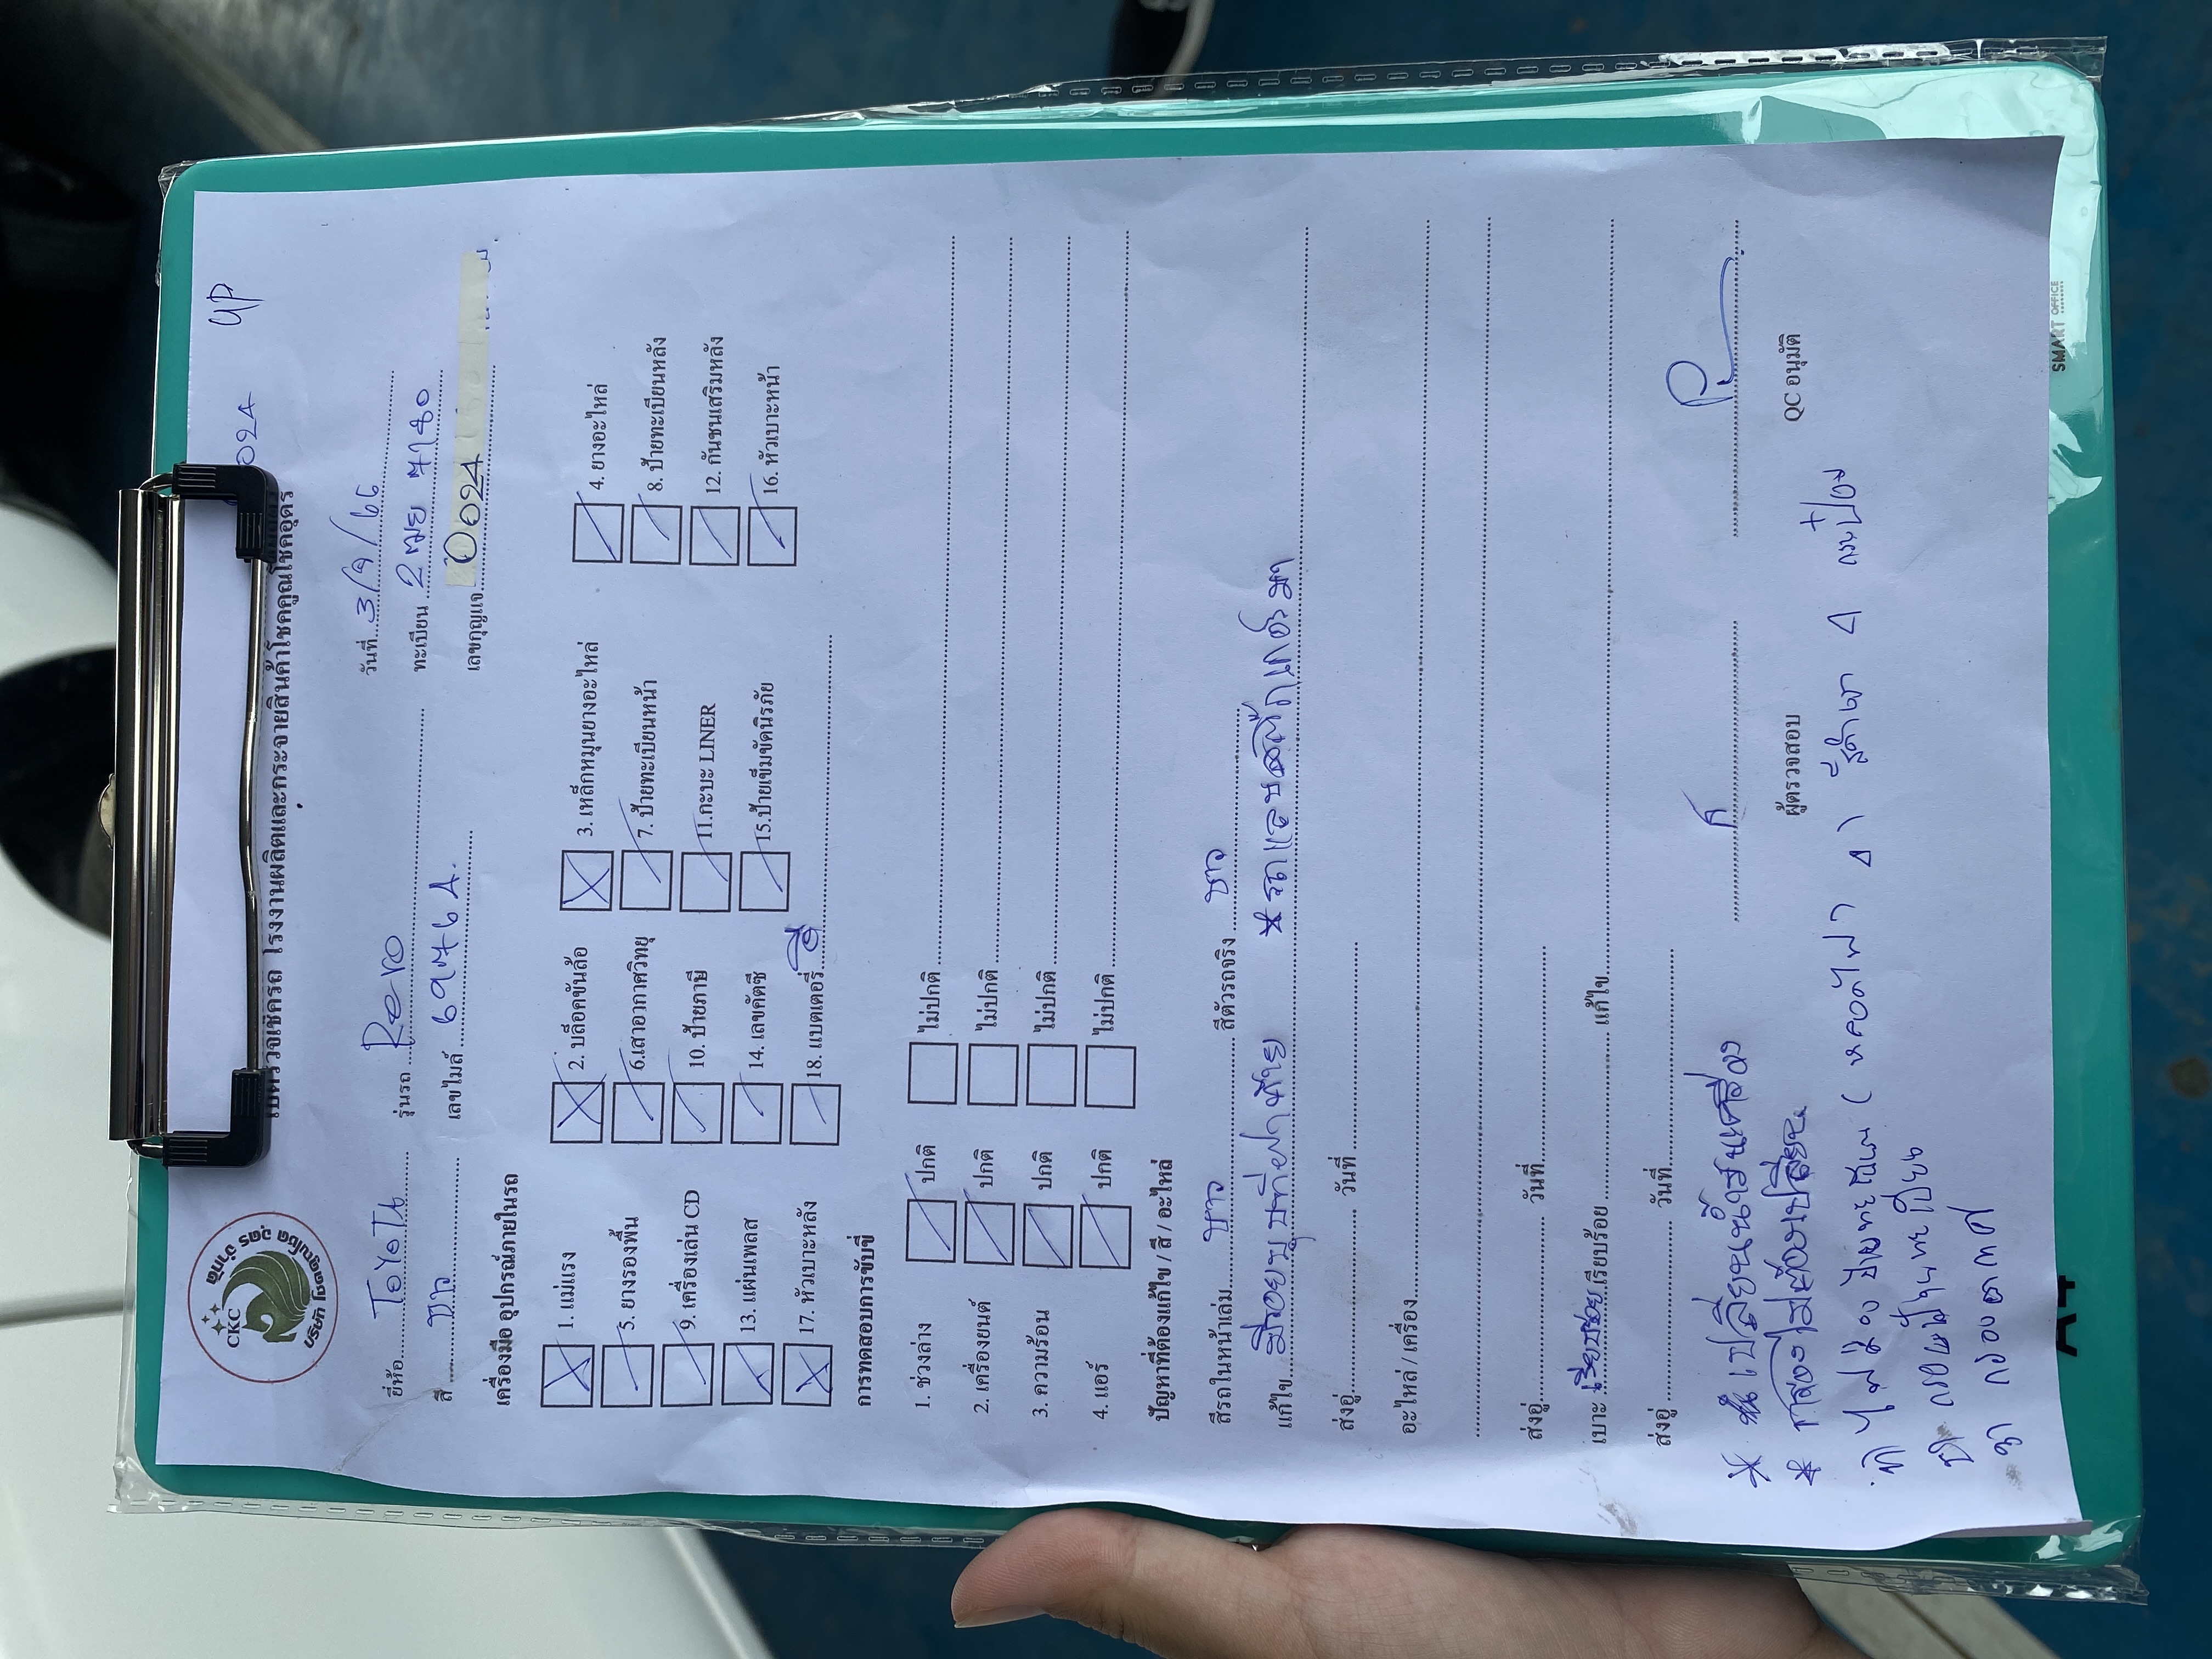 CKC
บริษัท โชคคูณโชค อุดร จำกัด
0024 UP
ใบตรวจเช็ครถ โรงงานผลิตและกระจายสินค้าโชคคูณโชคอุดร
วันที่ 3/9/66
ยี่ห้อ TOYOTA รุ่นรถ Revo ทะเบียน 2 ฒย 7180
สี ขาว เลขไมล์ 69776 A. เลขกุญแจ 0024
เครื่องมือ อุปกรณ์ภายในรถ
1. แม่แรง 2. บล็อคขันล้อ 3. เหล็กหมุนยางอะไหล่ 4. ยางอะไหล่
5. ยางรองพื้น 6.เสาอากาศวิทยุ 7. ป้ายทะเบียนหน้า 8. ป้ายทะเบียนหลัง
9. เครื่องเล่น CD 10. ป้ายภาษี 11.กะบะ LINER 12. กันชนเสริมหลัง
13. แผ่นเพลส 14. เลขคัตซี 15.ป้ายเข็มขัดนิรภัย 16. หัวเบาะหน้า
17. หัวเบาะหลัง 18. แบตเตอรี่ ดี
การทดสอบการขับขี่
1. ช่วงล่าง ปกติ ไม่ปกติ
2. เครื่องยนต์ ปกติ ไม่ปกติ
3. ความร้อน ปกติ ไม่ปกติ
4. แอร์ ปกติ ไม่ปกติ
ปัญหาที่ต้องแก้ไข / สี / อะไหล่
สีรถในหน้าเล่ม ขาว สีตัวรถจริง ขาว
แก้ไข มีรอยบุบที่ฝาท้าย
ส่งอู่ วันที่
อะไหล่ / เครื่อง
ส่งอู่ วันที่
เบาะ เรียบร้อย เรียบร้อย แก้ไข
ส่งอู่ วันที่
* เปลี่ยนน้ำมันเครื่อง
ผู้ตรวจสอบ QC อนุมัติ
* กรองไม่ต้องเปลี่ยน
ไฟส่องป้ายทะเบียน ( หลอดไฟ
กรอบป้ายทะเบียน
กรองอากาศ
A4
SMART OFFICE